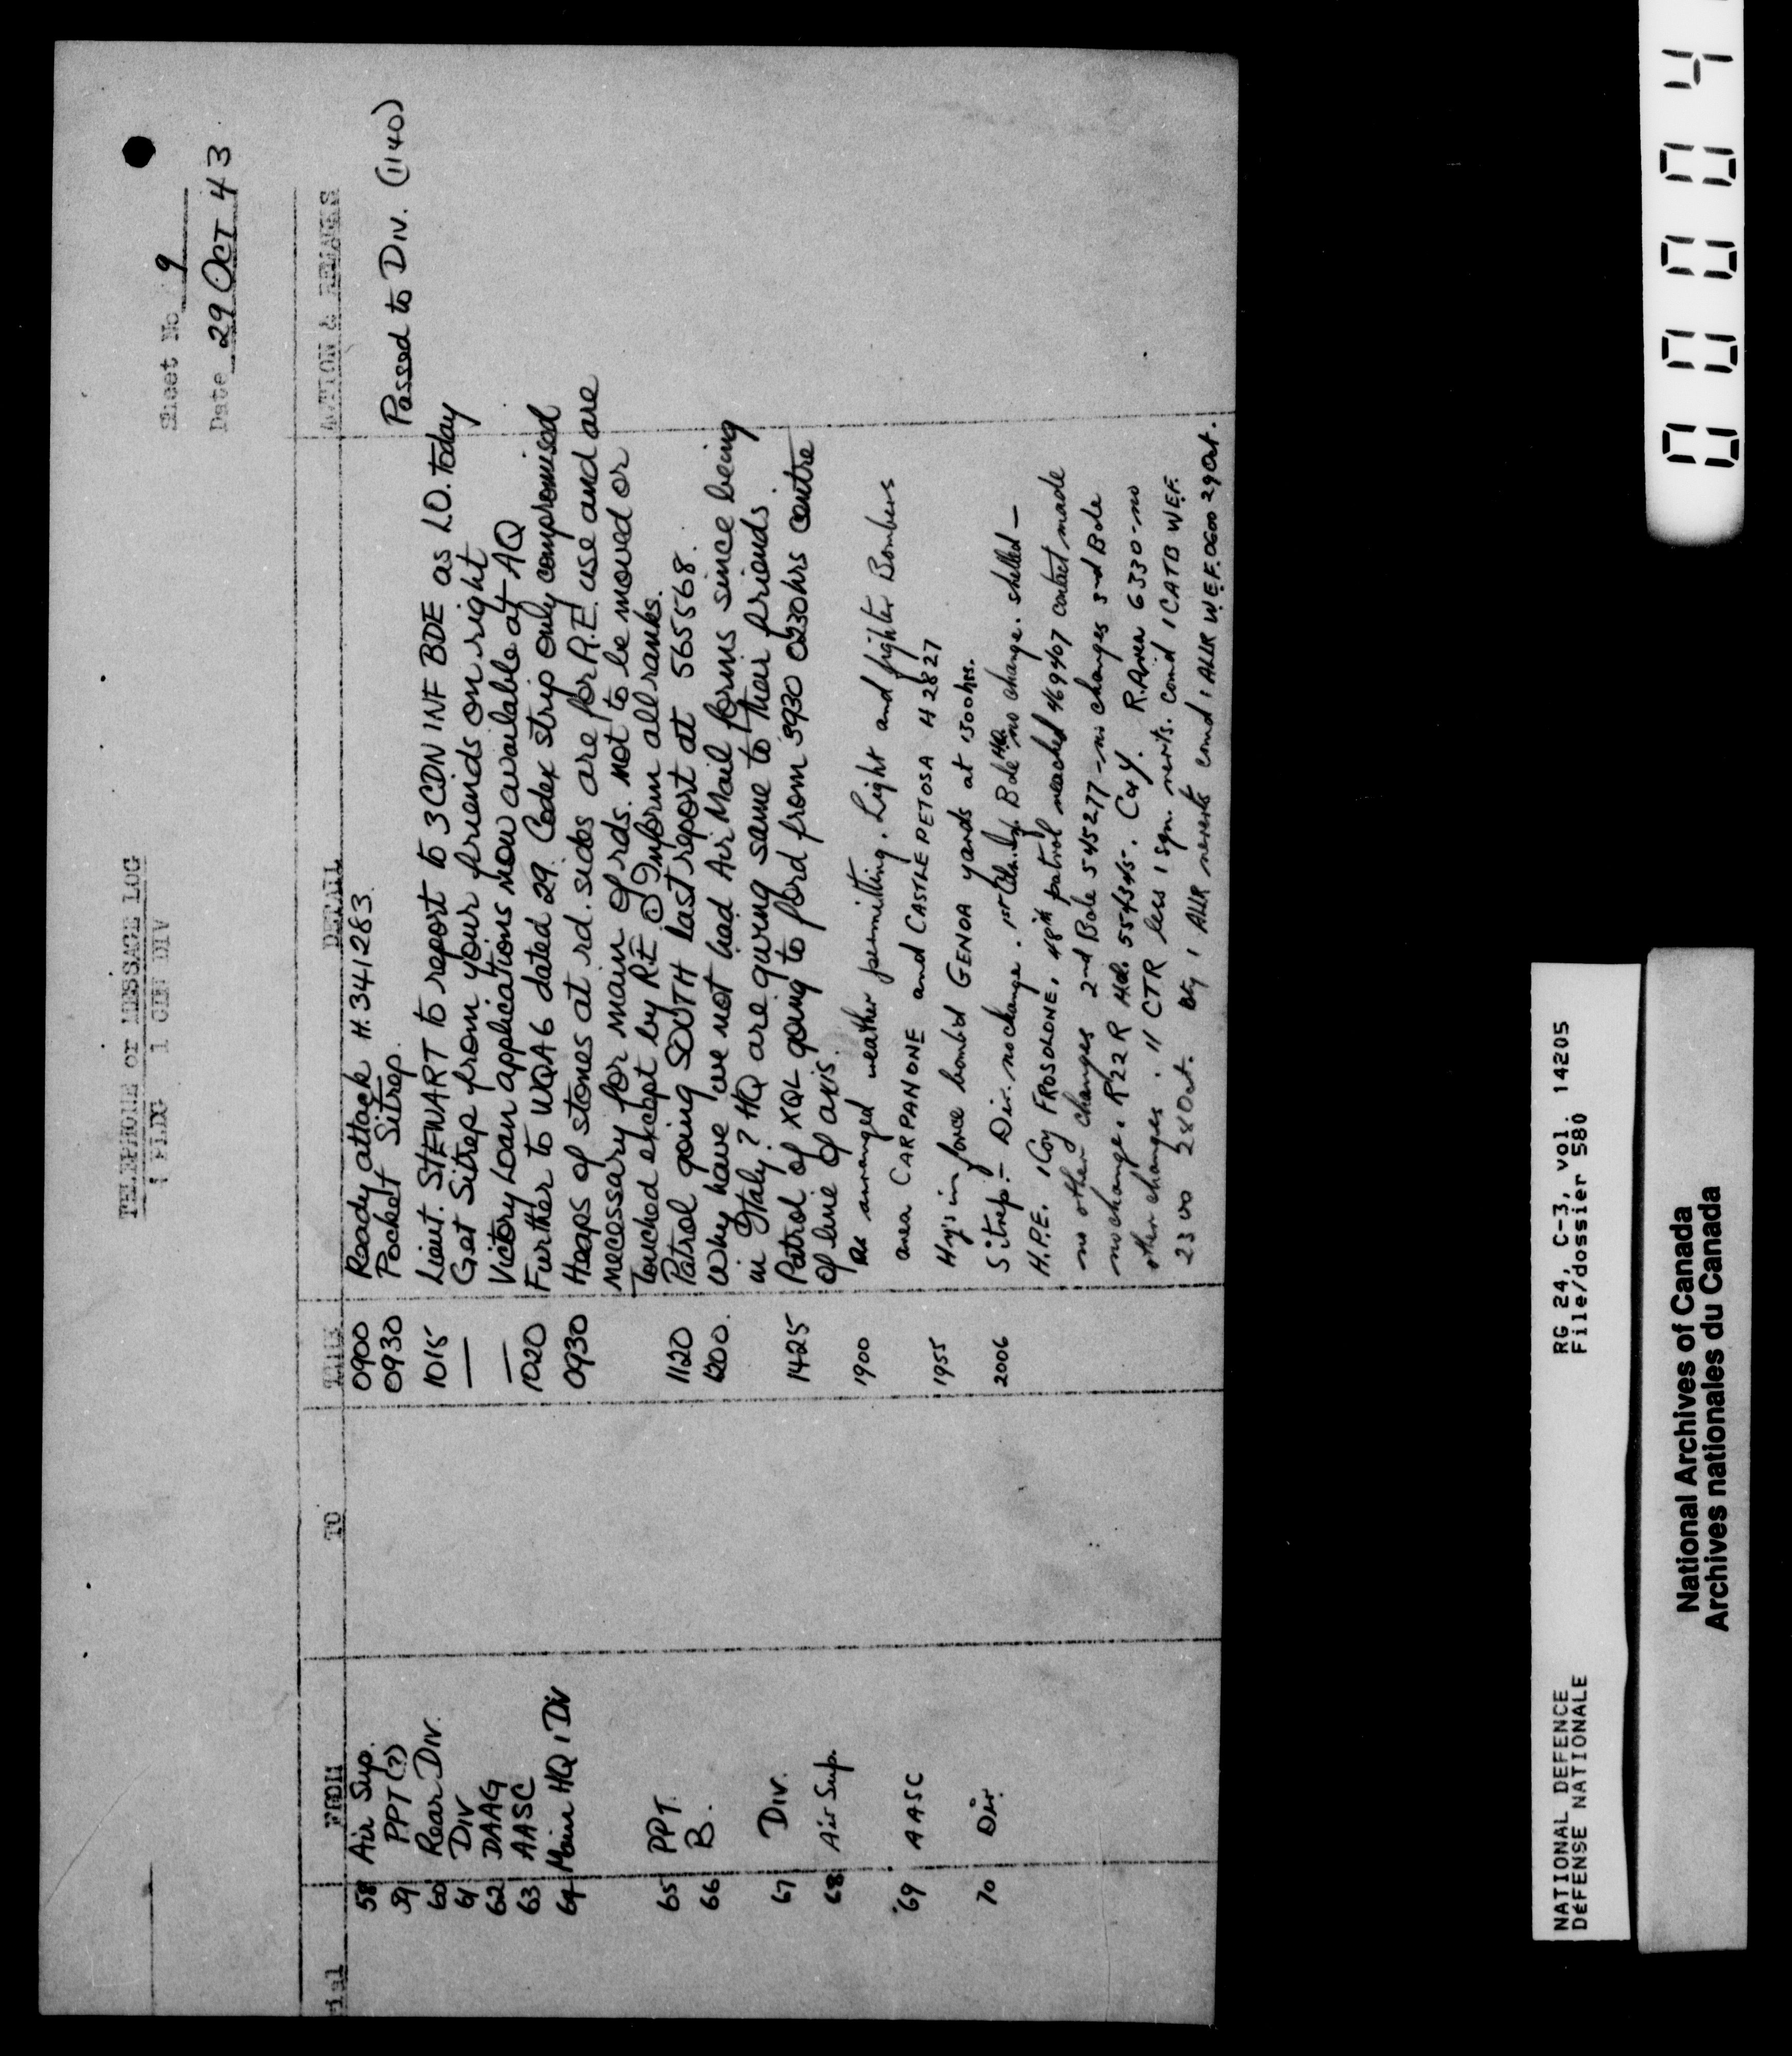 TELEPHONE or MESSAGE LOG
1 CDN DIV
Sheet No 9
Date 29 OCT 43
rial FROM TO TIME DETAIL ACTION & REMARKS
58 Air Sup. 0900 Ready attack H.341283.
59 PPT (?) 0930 Pocket Sitrep. Passed to Div. (1140)
60 Rear Div. 1015 Lieut. STEWART to report to 3 CDN INF BDE as LO. today
61 Div — Get Sitrep from your friends on right
62 DAAG — Victory Loan applications now available at AQ
63 AASC 1020 Further to UQA6 dated 29. Codex strip only compromised
64 Main HQ 1 Div 0930 Heaps of stones at rd. sides are for R.E. use and are
necessary for main of rds. not to be moved or
touched except by R.E. Inform all ranks.
65 PPT. 1120 Patrol going SOUTH last report at 565568.
66 B. 1200. Why have we not had Air Mail forms since being
in Italy? HQ are giving same to their friends.
67 Div. 1425 Patrol of XQL going to ford from 3930 0230hrs centre
of line of axis.
68 Air Sup. 1900 As arranged weather permitting. Light and fighter Bombers
area CARPANONE and CASTLEPETOSA H 2827
69 AASC 1955 Hvy's in force bombed GENOA yards at 1300hrs.
70 Div. 2006 Sitrep:- Div. no change. 1st Cdn. Inf. Bde HQ. no change. shelled —
H.P.E. 1 Coy FROSOLONE, 48th patrol reached 469407 contact made
no other changes 2nd Bde 545277 - no changes 3rd Bde
no change. R22R Hd. 554345. Coy. R.Area 6330 - no
other changes. 11 CTR less 1 sqn. reverts. comd 1 CATB WEF.
2300 28 Oct. 1 ALLR reverts comd 1 ALLR W.E.F. 0600 29 Oct.
00004
NATIONAL DEFENCE RG 24, C-3, vol. 14205
DÉFENSE NATIONALE File/dossier 580
National Archives of Canada
Archives nationales du Canada